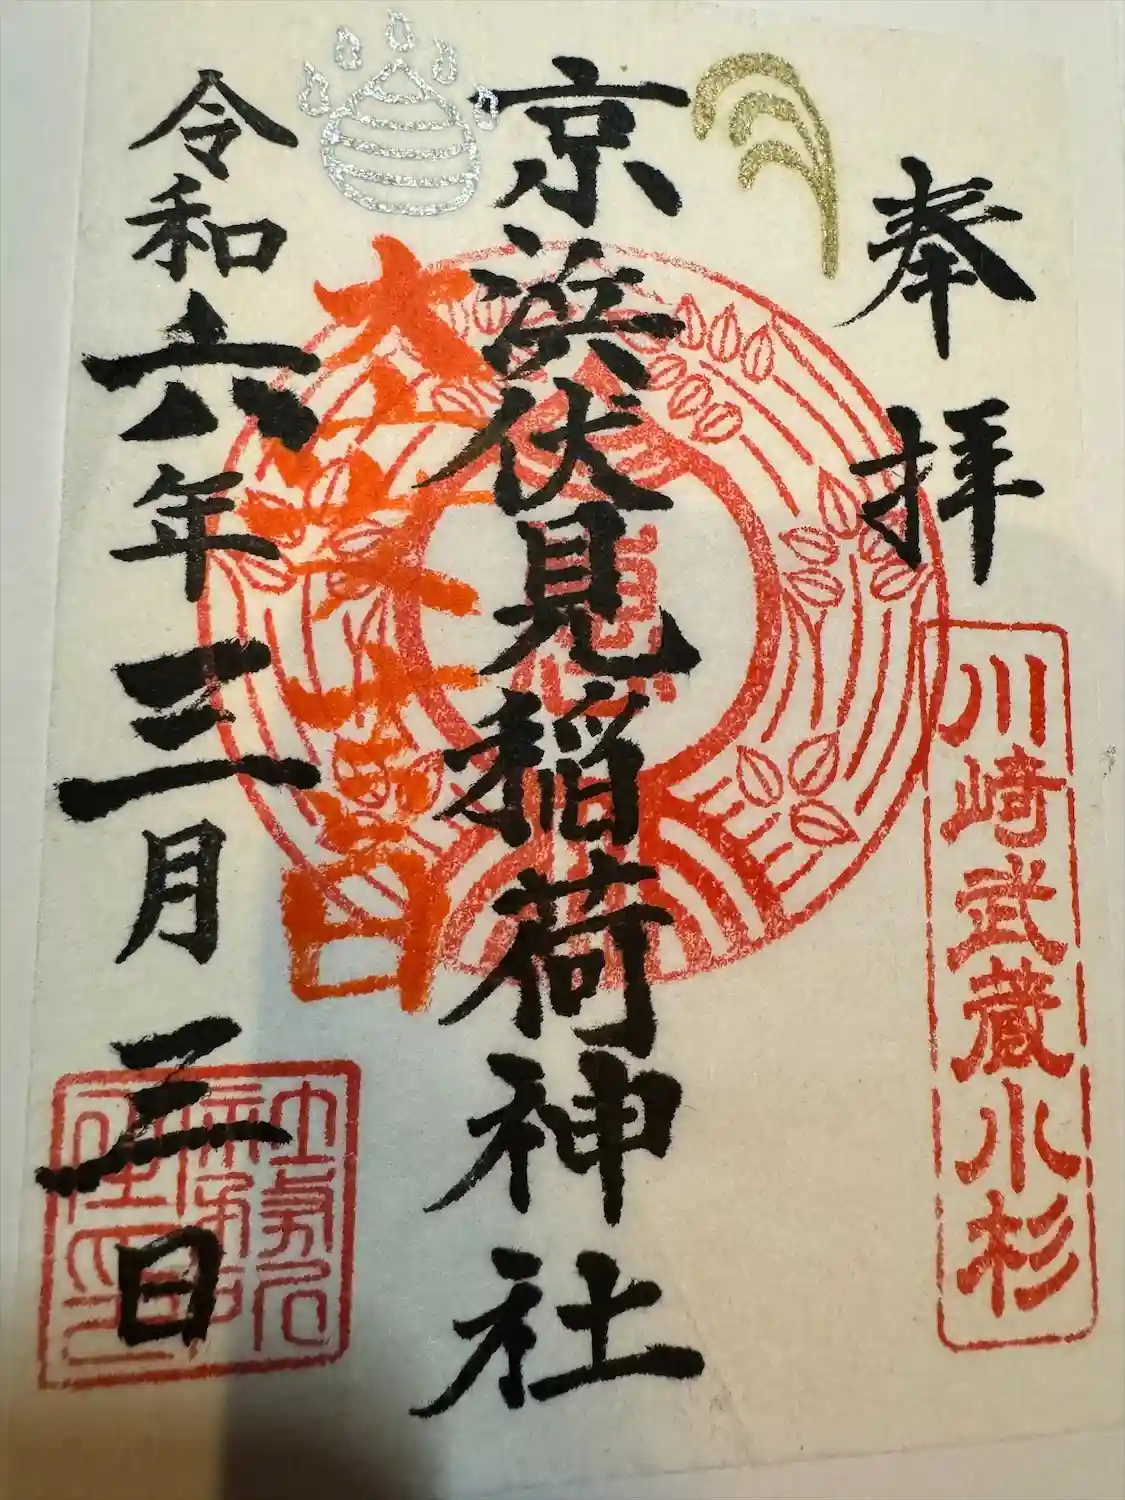 奉拝
川崎武蔵小杉
京浜伏見稲荷神社
大安吉日
令和六年三月三日